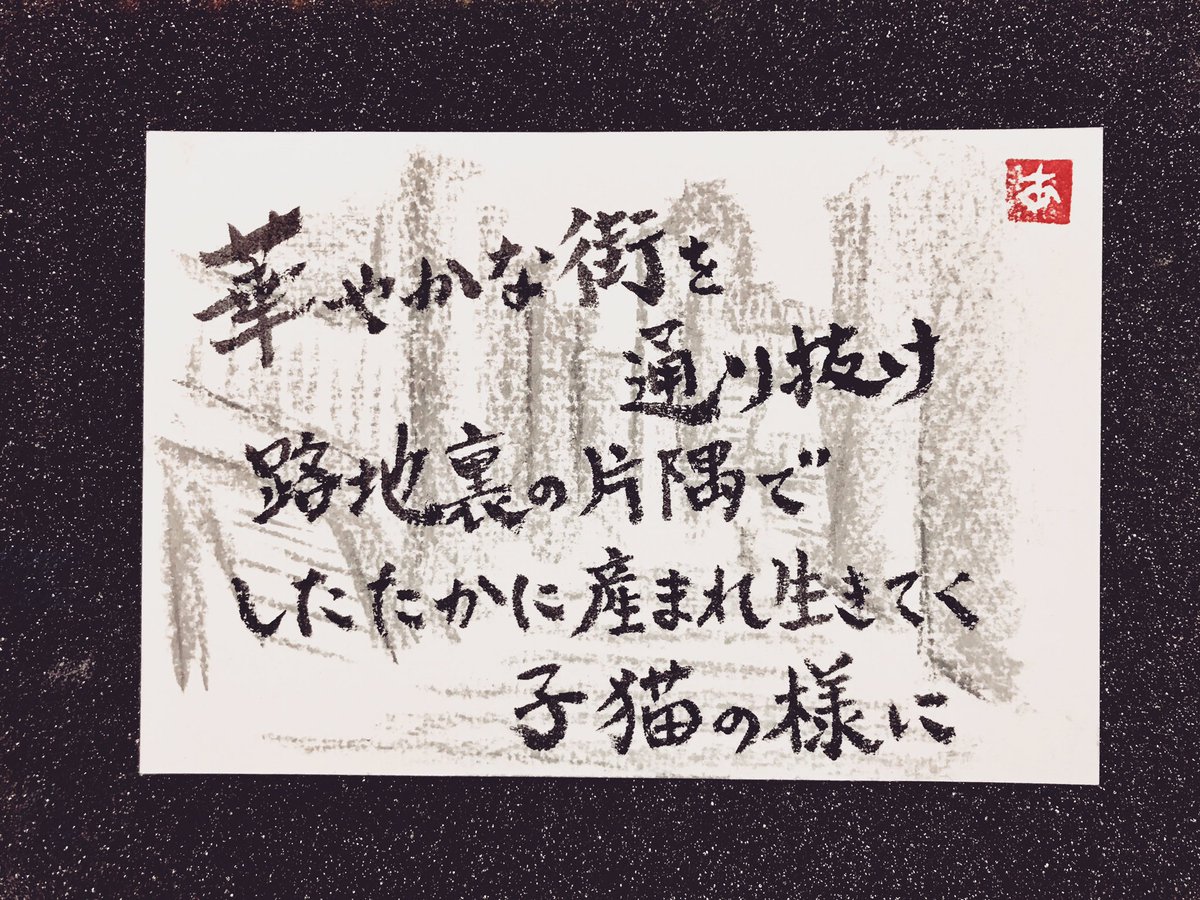 華やかな街を
通り抜け
路地裏の片隅で
したたかに産まれ生きてく
子猫の様に
あ